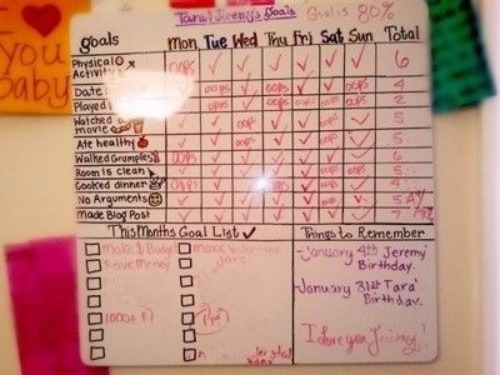 I ♥
you
baby
Tara & Jeremy's Goals Goal is 80%
goals Mon Tue Wed Thu Fri Sat Sun Total
Physical Activity oops ✓ ✓ ✓ ✓ ✓ ✓ 6
Date oops ✓ oops oops 4
Played oops oops oops 2
Watched a movie ✓ ✓ oops ✓ ✓ 5
Ate healthy ✓ ✓ oops ✓ ✓ 5
Walked Grumples oops ✓ ✓ ✓ ✓ ✓ ✓ 6
Room is clean ✓ ✓ ✓ ✓ ✓ oops oops 5
Cooked dinner oops ✓ ✓ oops ✓ oops ✓ 4
No Arguments 5
Made Blog Post ✓ ✓ ✓ ✓ ✓ ✓ ✓ 7
This Months Goal List ✓ Things to Remember
make $ Budget
Save money
make Valentine
Jars
1000+
-January 4th Jeremy
Birthday.
-January 31st Tara
Birthday.
I love you Jeremy!